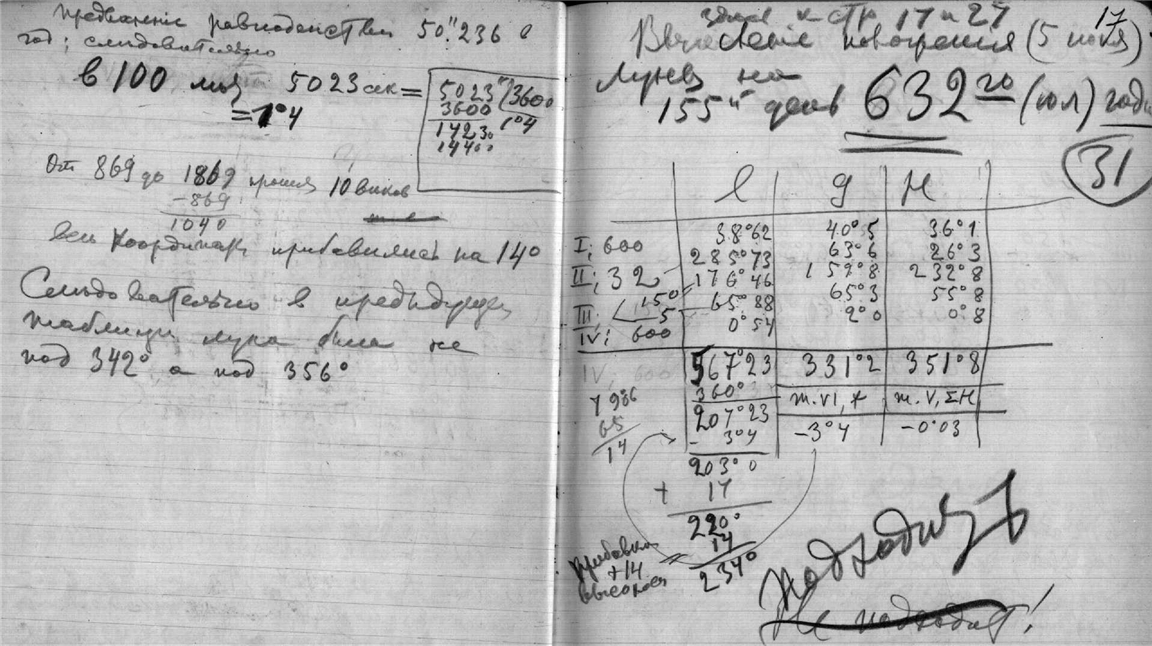 предварение равноденствия 50."236 в
год; следовательно
в 100 лет 5023 сек =
= 1°4
5023" / 3600
3600 1°4
14230
14400
От 869 до 1869 прошло 10 веков
-869
1040
координаты прибавились на 14°
Следовательно в предыдущей
таблице луна была не
под 342° а под 356°
к стр 17 и 27
17
Вычисление повторения (5 июля)
Луны на
155й день 632го (юл) года
31
l g H
I; 600 38°62 40°5 36°1
II; 32 285°73 63°6 26°3
150 176°46 159°8 232°8
III; 5 65°88 65°3 55°8
IV; 600 0°54 2°0 0°8
IV, 600 567°23 331°2 351°8
360° т. VI, * т. V, ΣH
207°23 -3°4 -0°03
65
14
- 3°4
203°0
+ 17
220°
14
234°
прибавка
+14
Подходит
Не подходит!